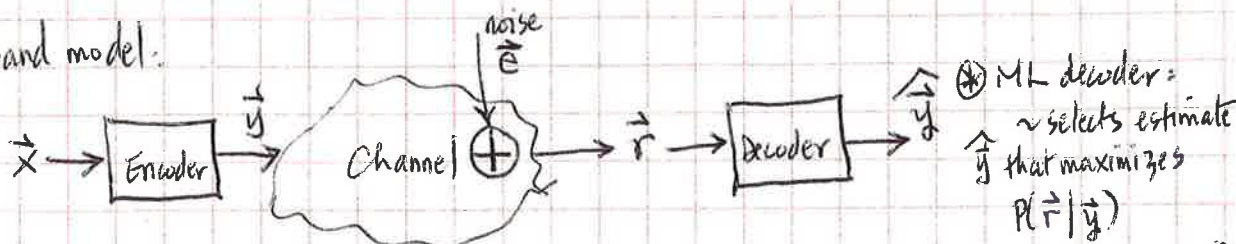 and model:
noise
e⃗
x⃗ → Encoder y⃗ → Channel ⊕ → r⃗ → Decoder → ŷ⃗
⊛ ML decoder:
~ selects estimate
ŷ⃗ that maximizes
P(r⃗ | y⃗)